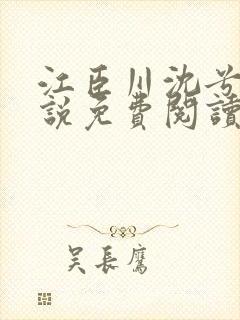 江臣川沈兮
說免費閱讀
吴長鷹